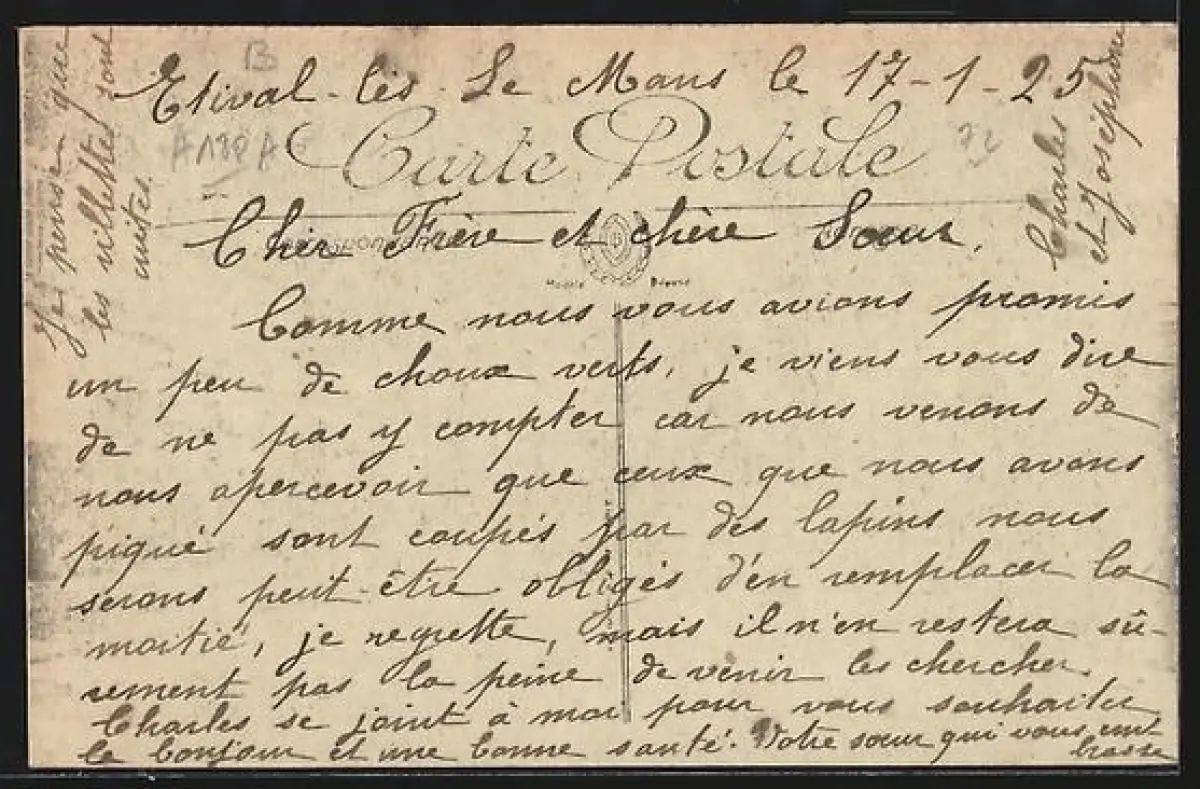 Etival-lès-Le Mans le 17-1-25
Carte Postale
Cher Frère et chère Sœur,
Modèle Déposé
Comme nous vous avions promis
un peu de choux verts, je viens vous dire
de ne pas y compter car nous venons de
nous apercevoir que ceux que nous avons
piqué sont coupés par des lapins nous
serons peut-être obligés d'en remplacer la
moitié, je regrette, mais il n'en restera sû-
rement pas la peine de venir les chercher.
Charles se joint à moi pour vous souhaiter
le bonjour et une bonne santé. Votre sœur qui vous em
brasse
Charles
et Joséphine
Je pense que
les rillettes sont
cuites.
B
72